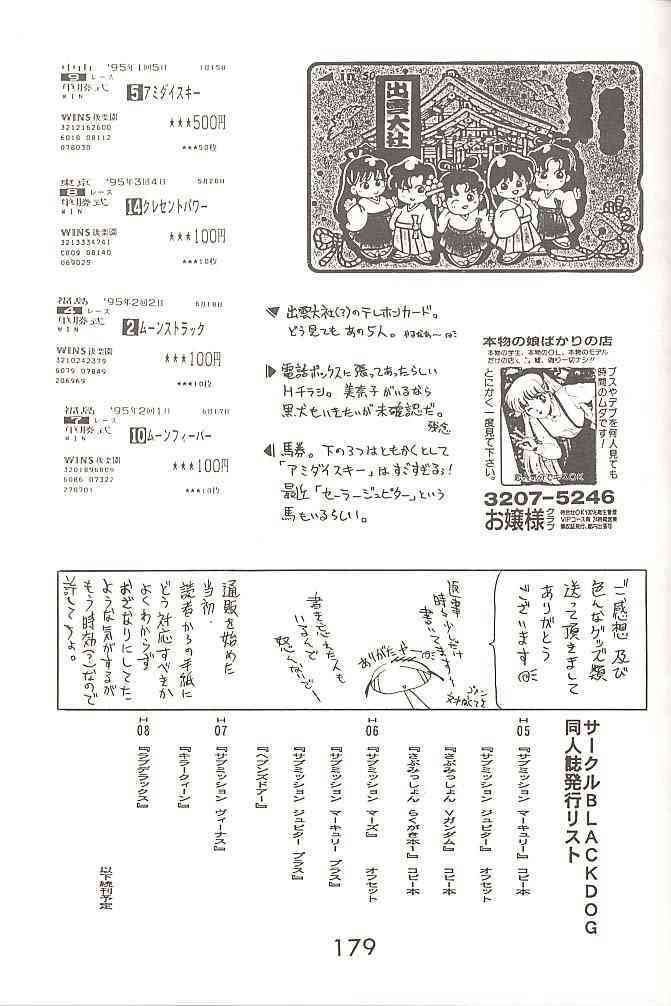 中山 '95年1回5日 1月15日
9 レース
単勝式
WIN
5 アミダイスキー
WINS後楽園
3212162600
6016 08112
078030
★★★500円
★★★50枚
東京 '95年3回4日 5月28日
8 レース
単勝式
WIN
14 クレセントパワー
WINS後楽園
3213334241
069025
★★★100円
★★★10枚
福島 '95年2回2日 6月18日
4 レース
単勝式
WIN
2 ムーンストラック
WINS後楽園
3210242379
6079 07849
206969
★★★100円
★★★10枚
福島 '95年2回1日 6月17日
7 レース
単勝式
WIN
10 ムーンフィーバー
WINS後楽園
3201896809
6086 07322
270701
★★★100円
★★★10枚
出雲大社
50
出雲大社(?)のテレホンカード。
どう見てもあの5人。
電話ボックスに張ってあったらしい
Hチラシ。美奈子がいるなら
黒犬もいきたいが未確認だ。
残念
馬券。下の3つはともかくとして
「アミダイスキー」はすごすぎる!
最近「セーラージュピター」という
馬もいるらしい。
本物の娘ばかりの店
本物の学生、本物のOL、本物のモデル
だけの店で、嘘、偽り一切ナシ!!
ブスやデブを何人見ても
時間のムダです!
とにかく一度見て下さい。
3207-5246
お嬢様クラブ
ご感想 及び
色んなグッズ類
送って頂きまして
ありがとう
ございます
返事
時々しか
書いてませんが
ありがたや
書き忘れた人も
いるくで
怒んないでー
通販を始めた
当初、
読者からの手紙に
どう対応すべきか
よくわからず
おざなりにしてた
ような気がするが
もう時効(?)なので
許してちょ。
サークルBLACKDOG
同人誌発行リスト
H05
『サブミッション マーキュリー』 コピー本
『サブミッション ジュピター』 オフセット
『さぶみっしょん Vガンダム』 コピー本
『さぶみっしょん らくがきホー』 コピー本
H06
『サブミッション マーズ』 オフセット
『サブミッション マーキュリー プラス』
『サブミッション ジュピター プラス』
『ヘブンズドアー』
H07
『サブミッション ヴィーナス』
『キラークィーン』
H08
『ラブデラックス』
以下続刊予定
179